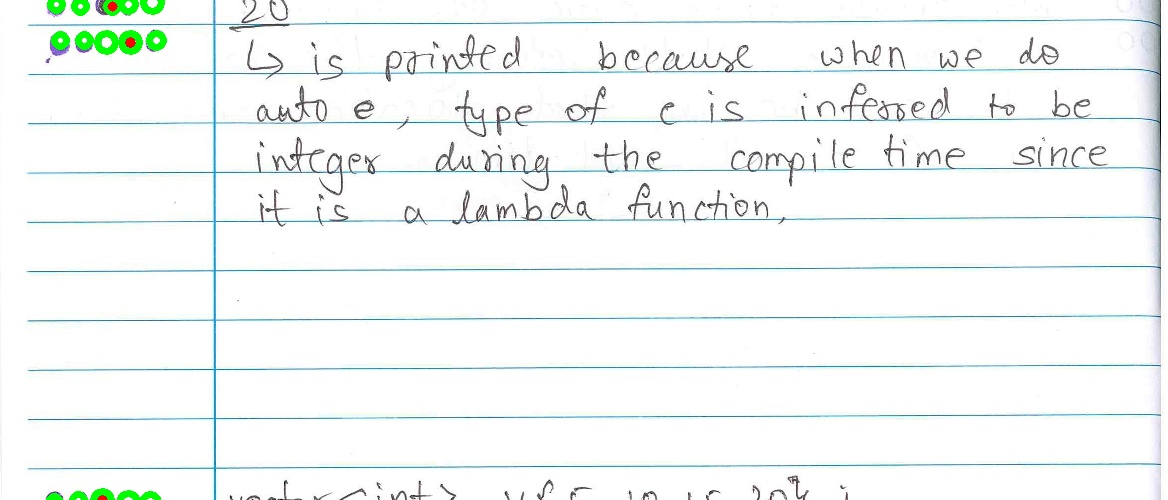 20
↳ is printed because when we do
auto e, type of e is inferred to be
integer during the compile time since
it is a lambda function,
vector<int> v